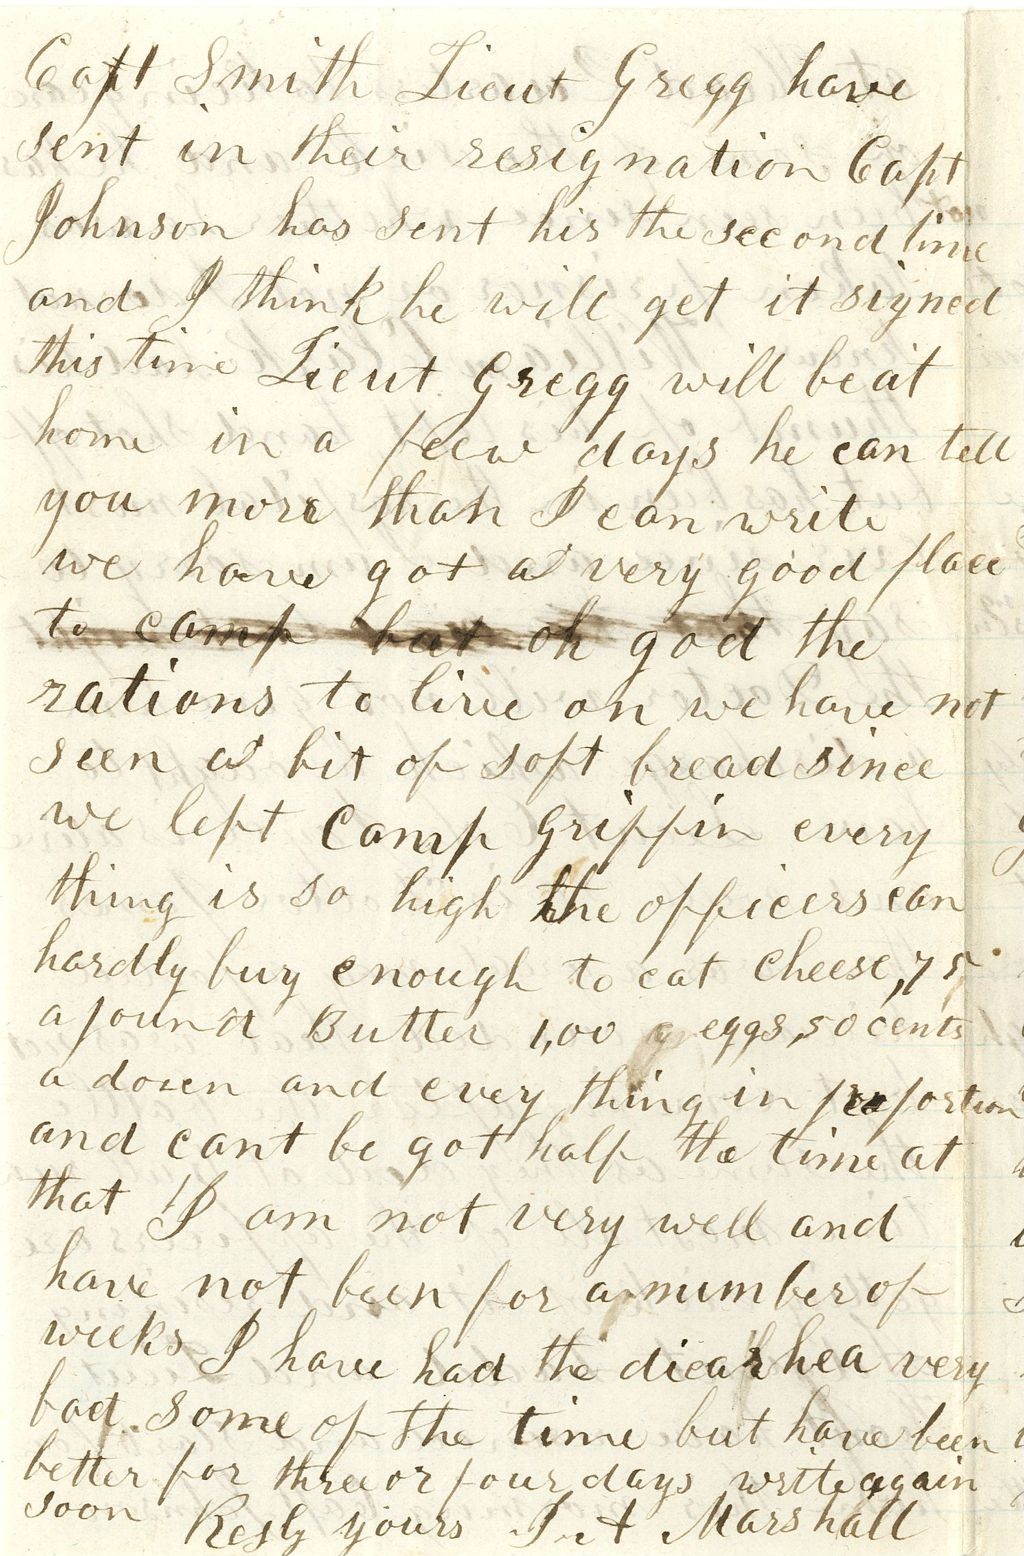 Capt Smith Lieut Gregg have
sent in their resignation Capt
Johnson has sent his the second time
and I think he will get it signed
this time Lieut Gregg will be at
home in a feew days he can tell
you more than I can write
we have got a very good place
to camp but oh god the
rations to live on we have not
seen a bit of soft bread since
we left Camp Griffin every
thing is so high the officers can
hardly buy enough to eat cheese, 75
a pound Butter 1,00 eggs, 50 cents
a dozen and every thing in proportion
and cant be got half the time at
that I am not very well and
have not been for a number of
weeks I have had the diearhea very
bad some of the time but have been
better for three or four days write again
soon Resly yours Marshall